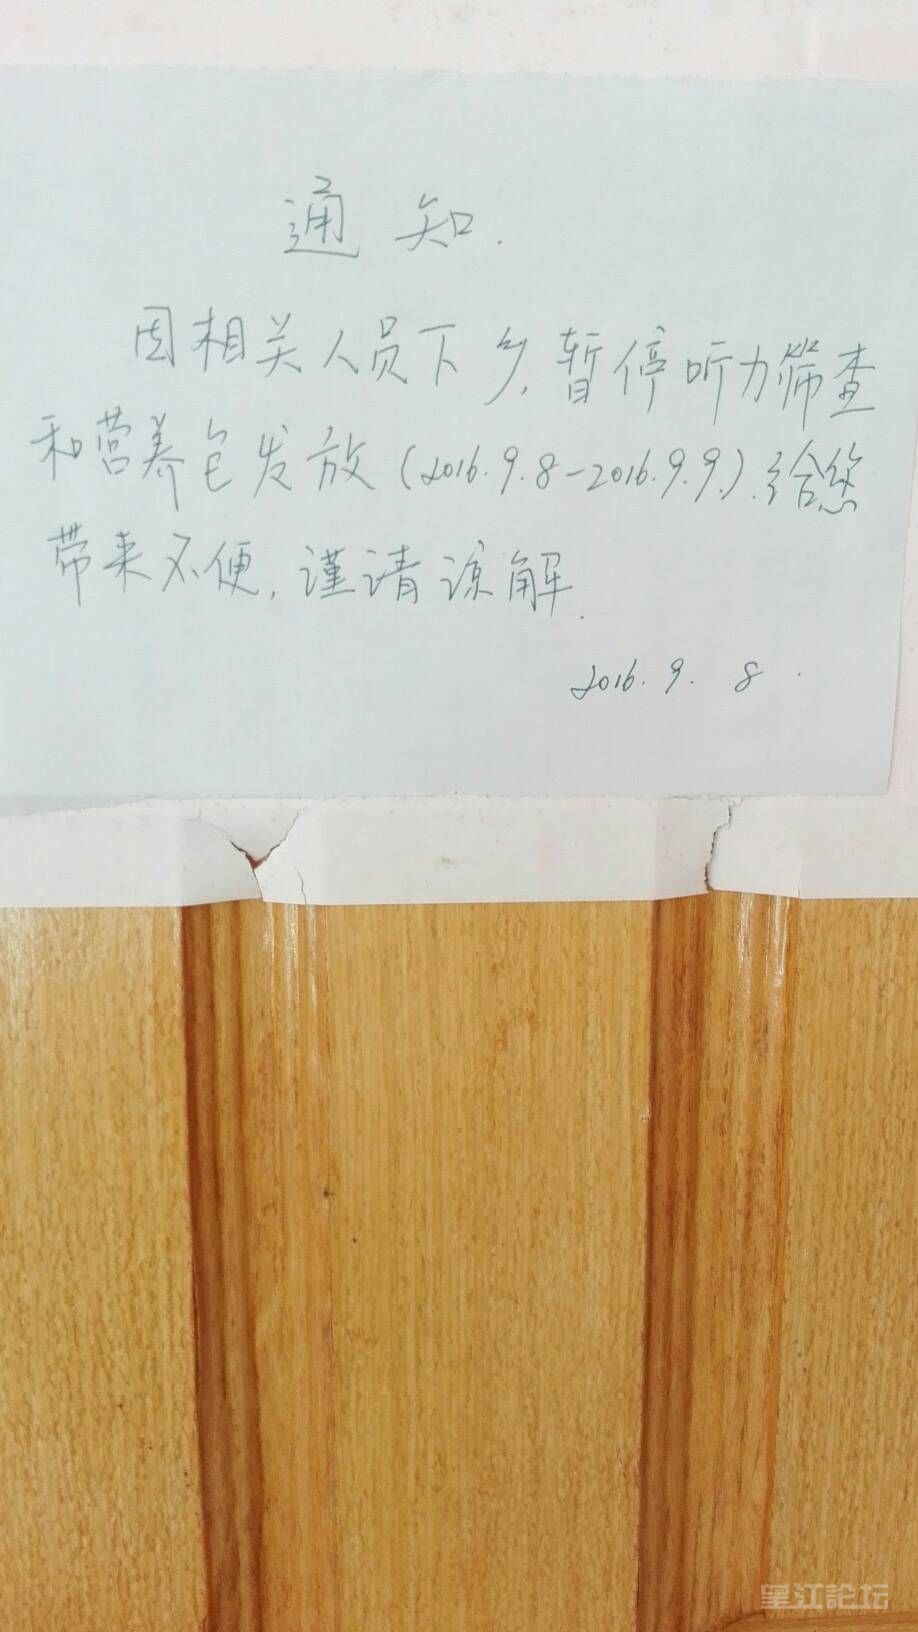 通知.
因相关人员下乡,暂停听力筛查
和营养包发放(2016.9.8-2016.9.9).给您
带来不便,谨请谅解.
2016.9.8.
望江論坛